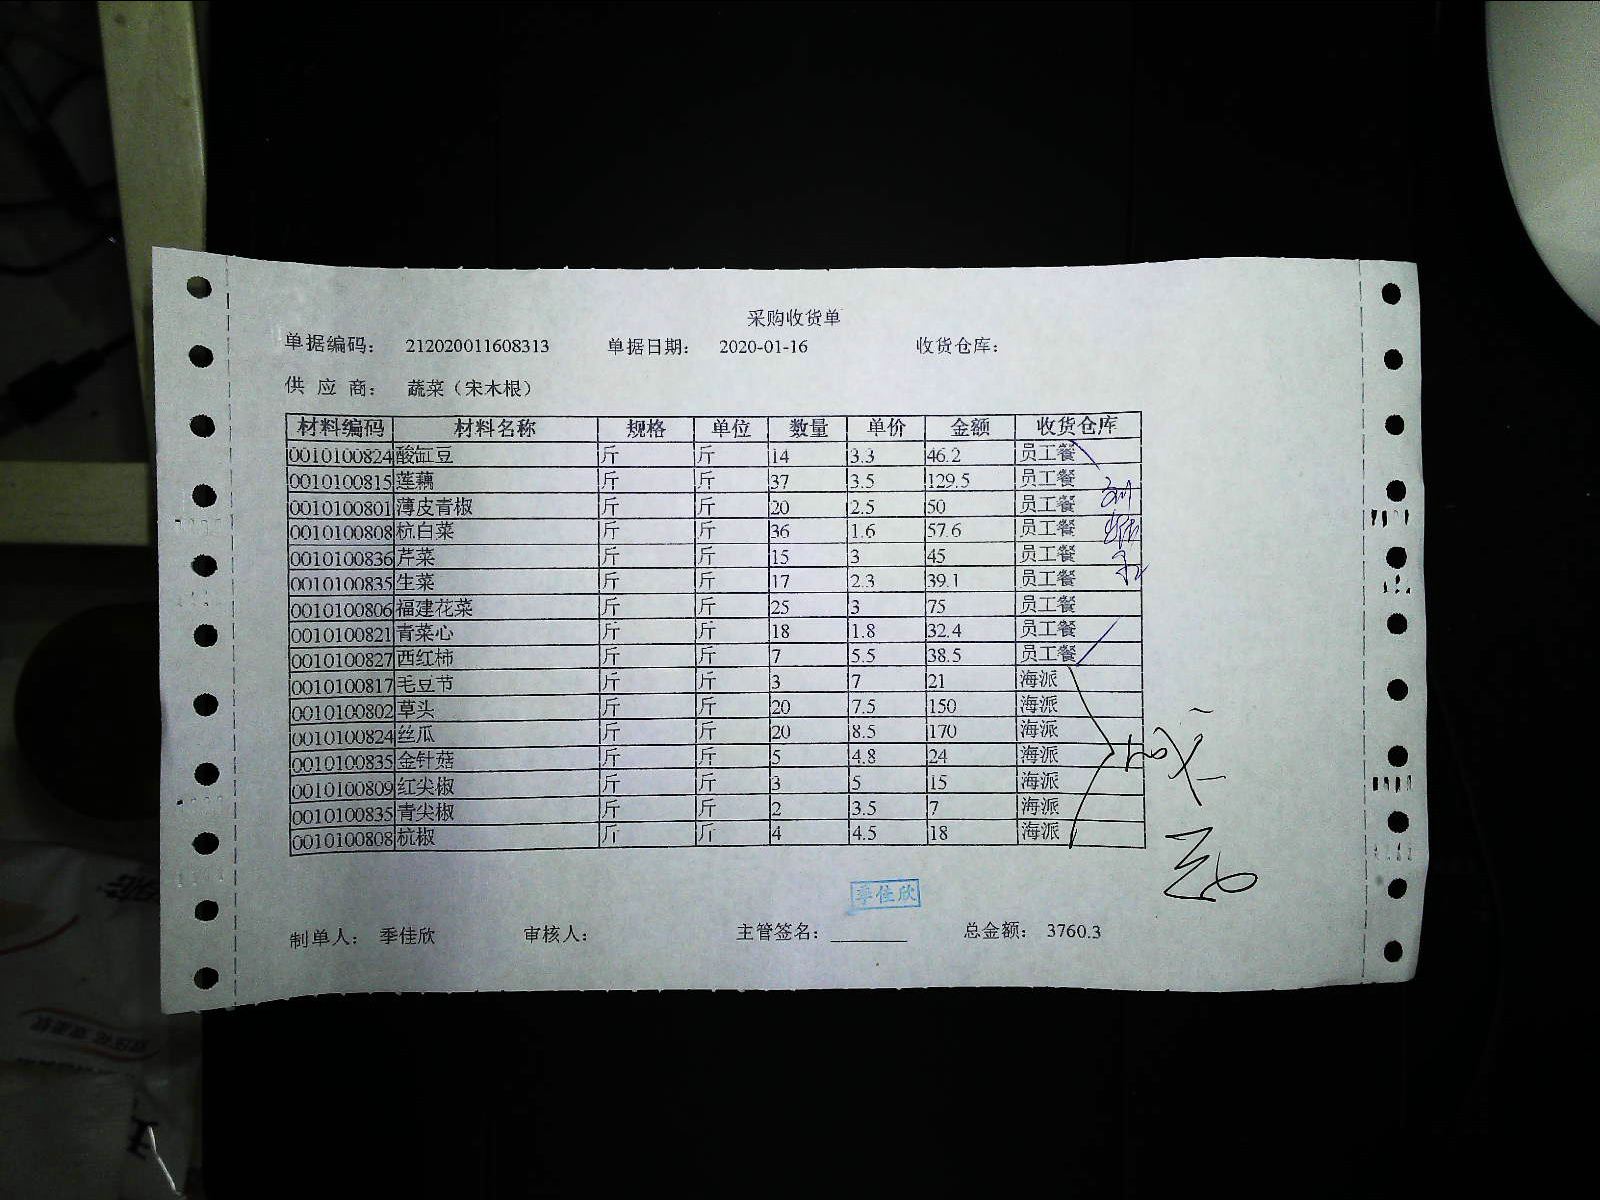 采购收货单
单据编码： 212020011608313 单据日期： 2020-01-16 收货仓库：
供 应 商： 蔬菜（宋木根）
材料编码 材料名称 规格 单位 数量 单价 金额 收货仓库
0010100824 酸缸豆 斤 斤 14 3.3 46.2 员工餐
0010100815 莲藕 斤 斤 37 3.5 129.5 员工餐
0010100801 薄皮青椒 斤 斤 20 2.5 50 员工餐
0010100808 杭白菜 斤 斤 36 1.6 57.6 员工餐
0010100836 芹菜 斤 斤 15 3 45 员工餐
0010100835 生菜 斤 斤 17 2.3 39.1 员工餐
0010100806 福建花菜 斤 斤 25 3 75 员工餐
0010100821 青菜心 斤 斤 18 1.8 32.4 员工餐
0010100827 西红柿 斤 斤 7 5.5 38.5 员工餐
0010100817 毛豆节 斤 斤 3 7 21 海派
0010100802 草头 斤 斤 20 7.5 150 海派
0010100824 丝瓜 斤 斤 20 8.5 170 海派
0010100835 金针菇 斤 斤 5 4.8 24 海派
0010100809 红尖椒 斤 斤 3 5 15 海派
0010100835 青尖椒 斤 斤 2 3.5 7 海派
0010100808 杭椒 斤 斤 4 4.5 18 海派
季佳欣
制单人： 季佳欣 审核人： 主管签名：________ 总金额： 3760.3